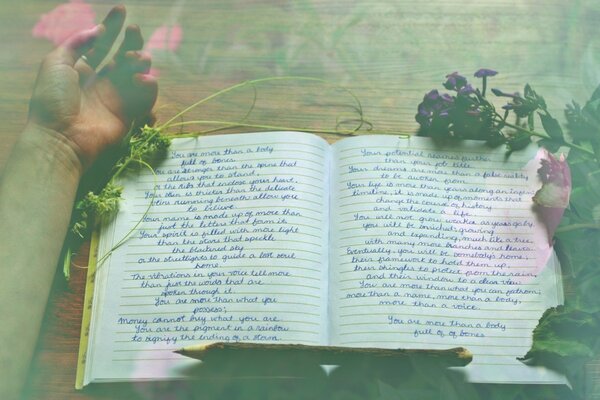 You are more than a body
full of bones.
You are stronger than the spine that
allows you to stand,
or the ribs that endose your heart.
is thicker than the delicate
veins running beneath allow you
to believe.
Your name is made up of more than
just the letters that form it.
Your spirit is filled with more light
than the stars that speckle
the blackened sky
or the streetlights to guide a lost soul
home.
The vibrations in your voice tell more
than just the words that are
spoken through it.
You are more than what you
possess;
Money cannot buy what you are.
You are the pigment in a rainbow
to signify the ending of a storm.
Your potential reaches further
than your fall.
Your dreams are more than a false reality
to be sold.
Your life is more than years along an
timeline, it is made up of moments that
change the course of history
and validate a life.
You will not grow weaker as years go by,
you will be enriched, growing
and expanding, much like a tree,
with many more branches and leaves.
Eventually, you will be somebody's home,
their framework to hold them up,
their shingles to protect from the rain,
and their window to a clear day.
You are more than what you can fathom,
more than a name, more than a body,
more than a voice.
You are more than a body
full of of bones.